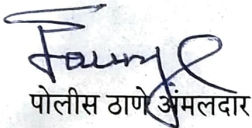 पोलीस ठाणे अंमलदार